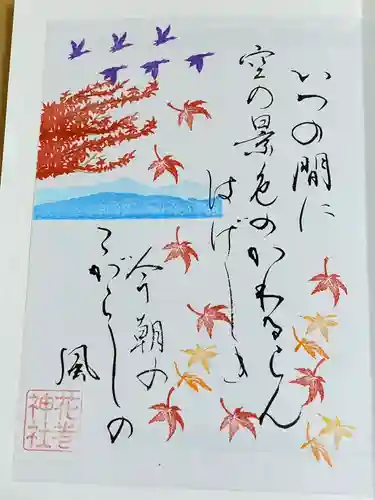 いつの間に
空の景色のかわるらん
はげしき
今朝の
こがらしの
風
花
神社